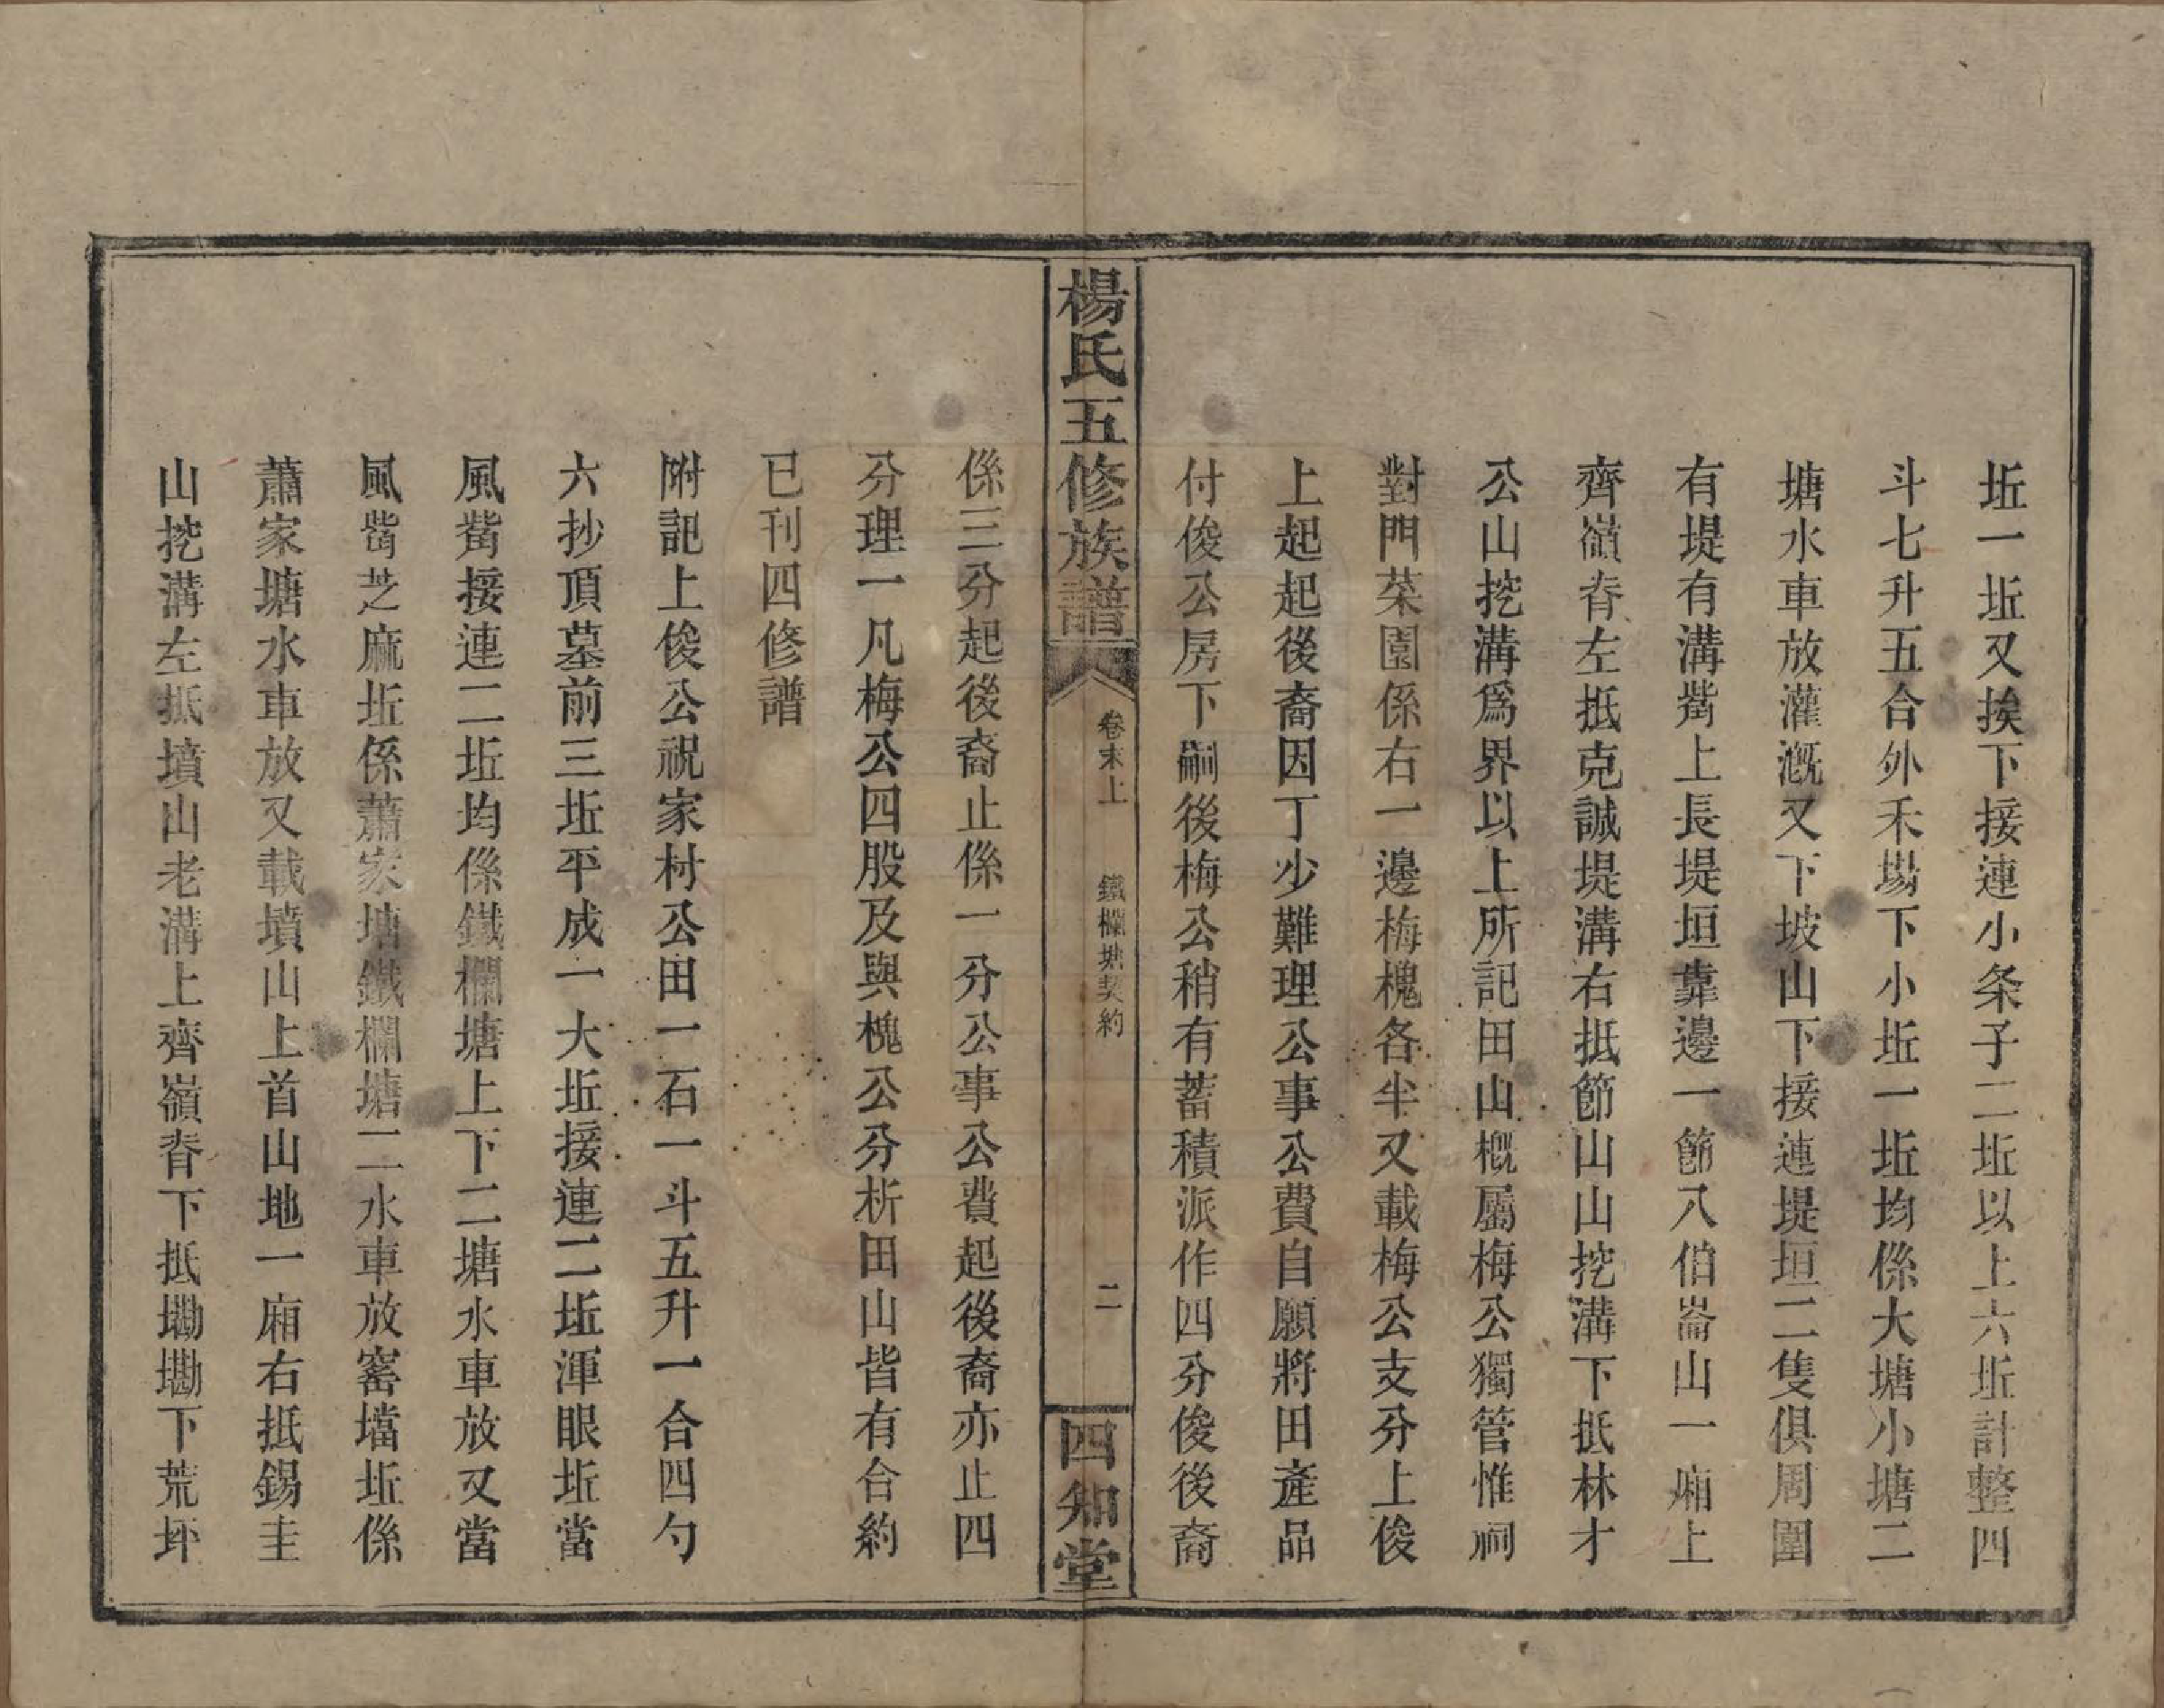 坵一坵又挨下接連小条子二坵以上六坵計整四
斗七升五合外禾場下小坵一坵均係大塘小塘二
塘水車放灌溉又下坡山下接連堤垣二隻俱周圍
有堤有溝嵅上長堤垣靠邊一節八伯崙山一廂上
齊嶺脊左抵克誠堤溝右抵節山山挖溝下抵林才
公山挖溝爲界以上所記田山概屬梅公獨管惟祠
對門菜園係右一邊梅槐各半又載梅公支分上俊
上起起後裔因丁少難理公事公費自願將田產品
付俊公房下嗣後梅公稍有蓄積派作四分俊後裔
楊氏五修族譜
卷末上
鐵欄塘契約
二
四知堂
係三分起後裔止係一分公事公費起後裔亦止四
分理一凡梅公四股及與槐公分析田山皆有合約
已刊四修譜
附記上俊公祝家村公田一石一斗五升一合四勺
六抄頂墓前三坵平成一大坵接連二坵渾眼坵當
風嵅接連二坵均係鐵欄塘上下二塘水車放又當
風嵅芝麻坵係蕭家塘鐵欄塘二水車放窰壋坵係
蕭家塘水車放又載墳山上首山地一廂右抵錫圭
山挖溝左抵墳山老溝上齊嶺脊下抵墈墈下荒坏